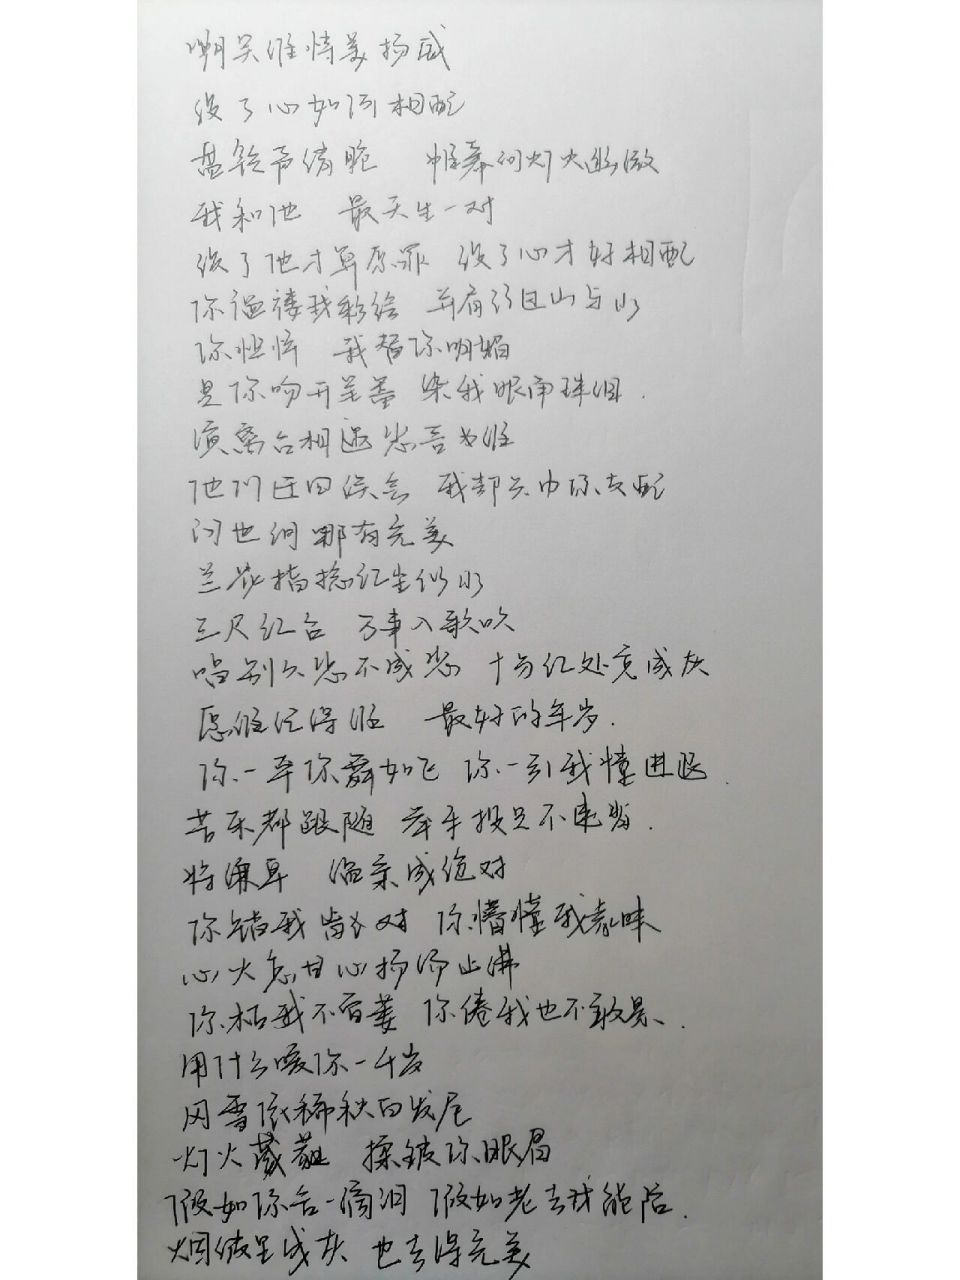 嘲笑谁恃美扬威
没了心如何相配
盘铃声清脆 帷幕间灯火幽微
我和他 最天生一对
没了他才算原罪 没了心才好相配
你褴褛我彩绘 并肩行过山与水
你憔悴 我替你明媚
是你吻开笔墨 染我眼角珠泪
演离合相遇悲喜为谁
他们迂回误会 我却只由你支配
问世间哪有完美
兰花指捻红尘似水
三尺红台 万事入歌吹
唱别久悲不成悲 十分红处竟成灰
愿谁记得谁 最好的年岁
你一牵你舞如飞 你一引我懂进退
苦乐都跟随 举手投足不违背
将谦卑 温柔成绝对
你错我不对 你懵懂我蒙昧
心火怎甘心扬汤止沸
你枯我不曾萎 你倦我也不敢累
用什么暖你一千岁
风雪依稀秋白发尾
灯火葳蕤 揉皱你眼眉
假如你舍一滴泪 假如老去我能陪
烟波里成灰 也去得完美